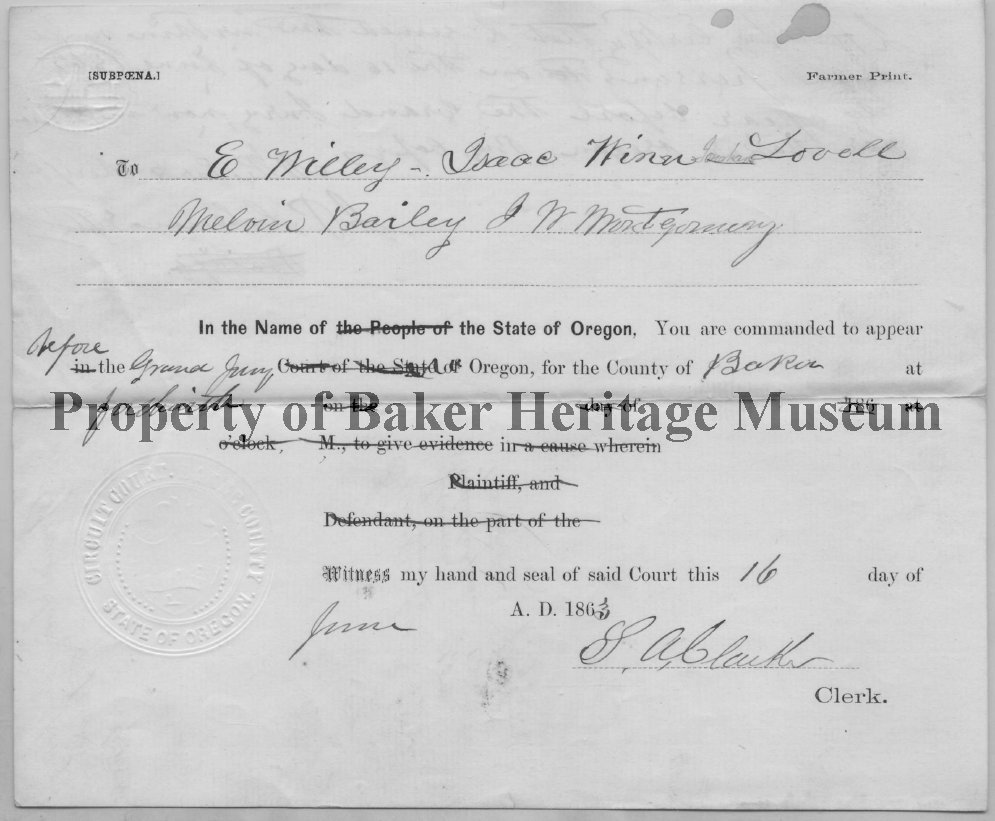 [SUBPŒNA.]
Farmer Print.
To E Willey - Isaac Winn Lovell
Melvin Bailey J W Montgomery
In the Name of the People of the State of Oregon, You are commanded to appear
before
in the Grand Jury Court of the State of Oregon, for the County of Baker at
forthwith on the day of 186 at
Property of Baker Heritage Museum
o'clock, M., to give evidence in a cause wherein
Plaintiff, and
Defendant, on the part of the
Witness my hand and seal of said Court this 16 day of
June A. D. 1863
S. A. Clarke
Clerk.
CIRCUIT COURT, COUNTY
STATE OF OREGON.